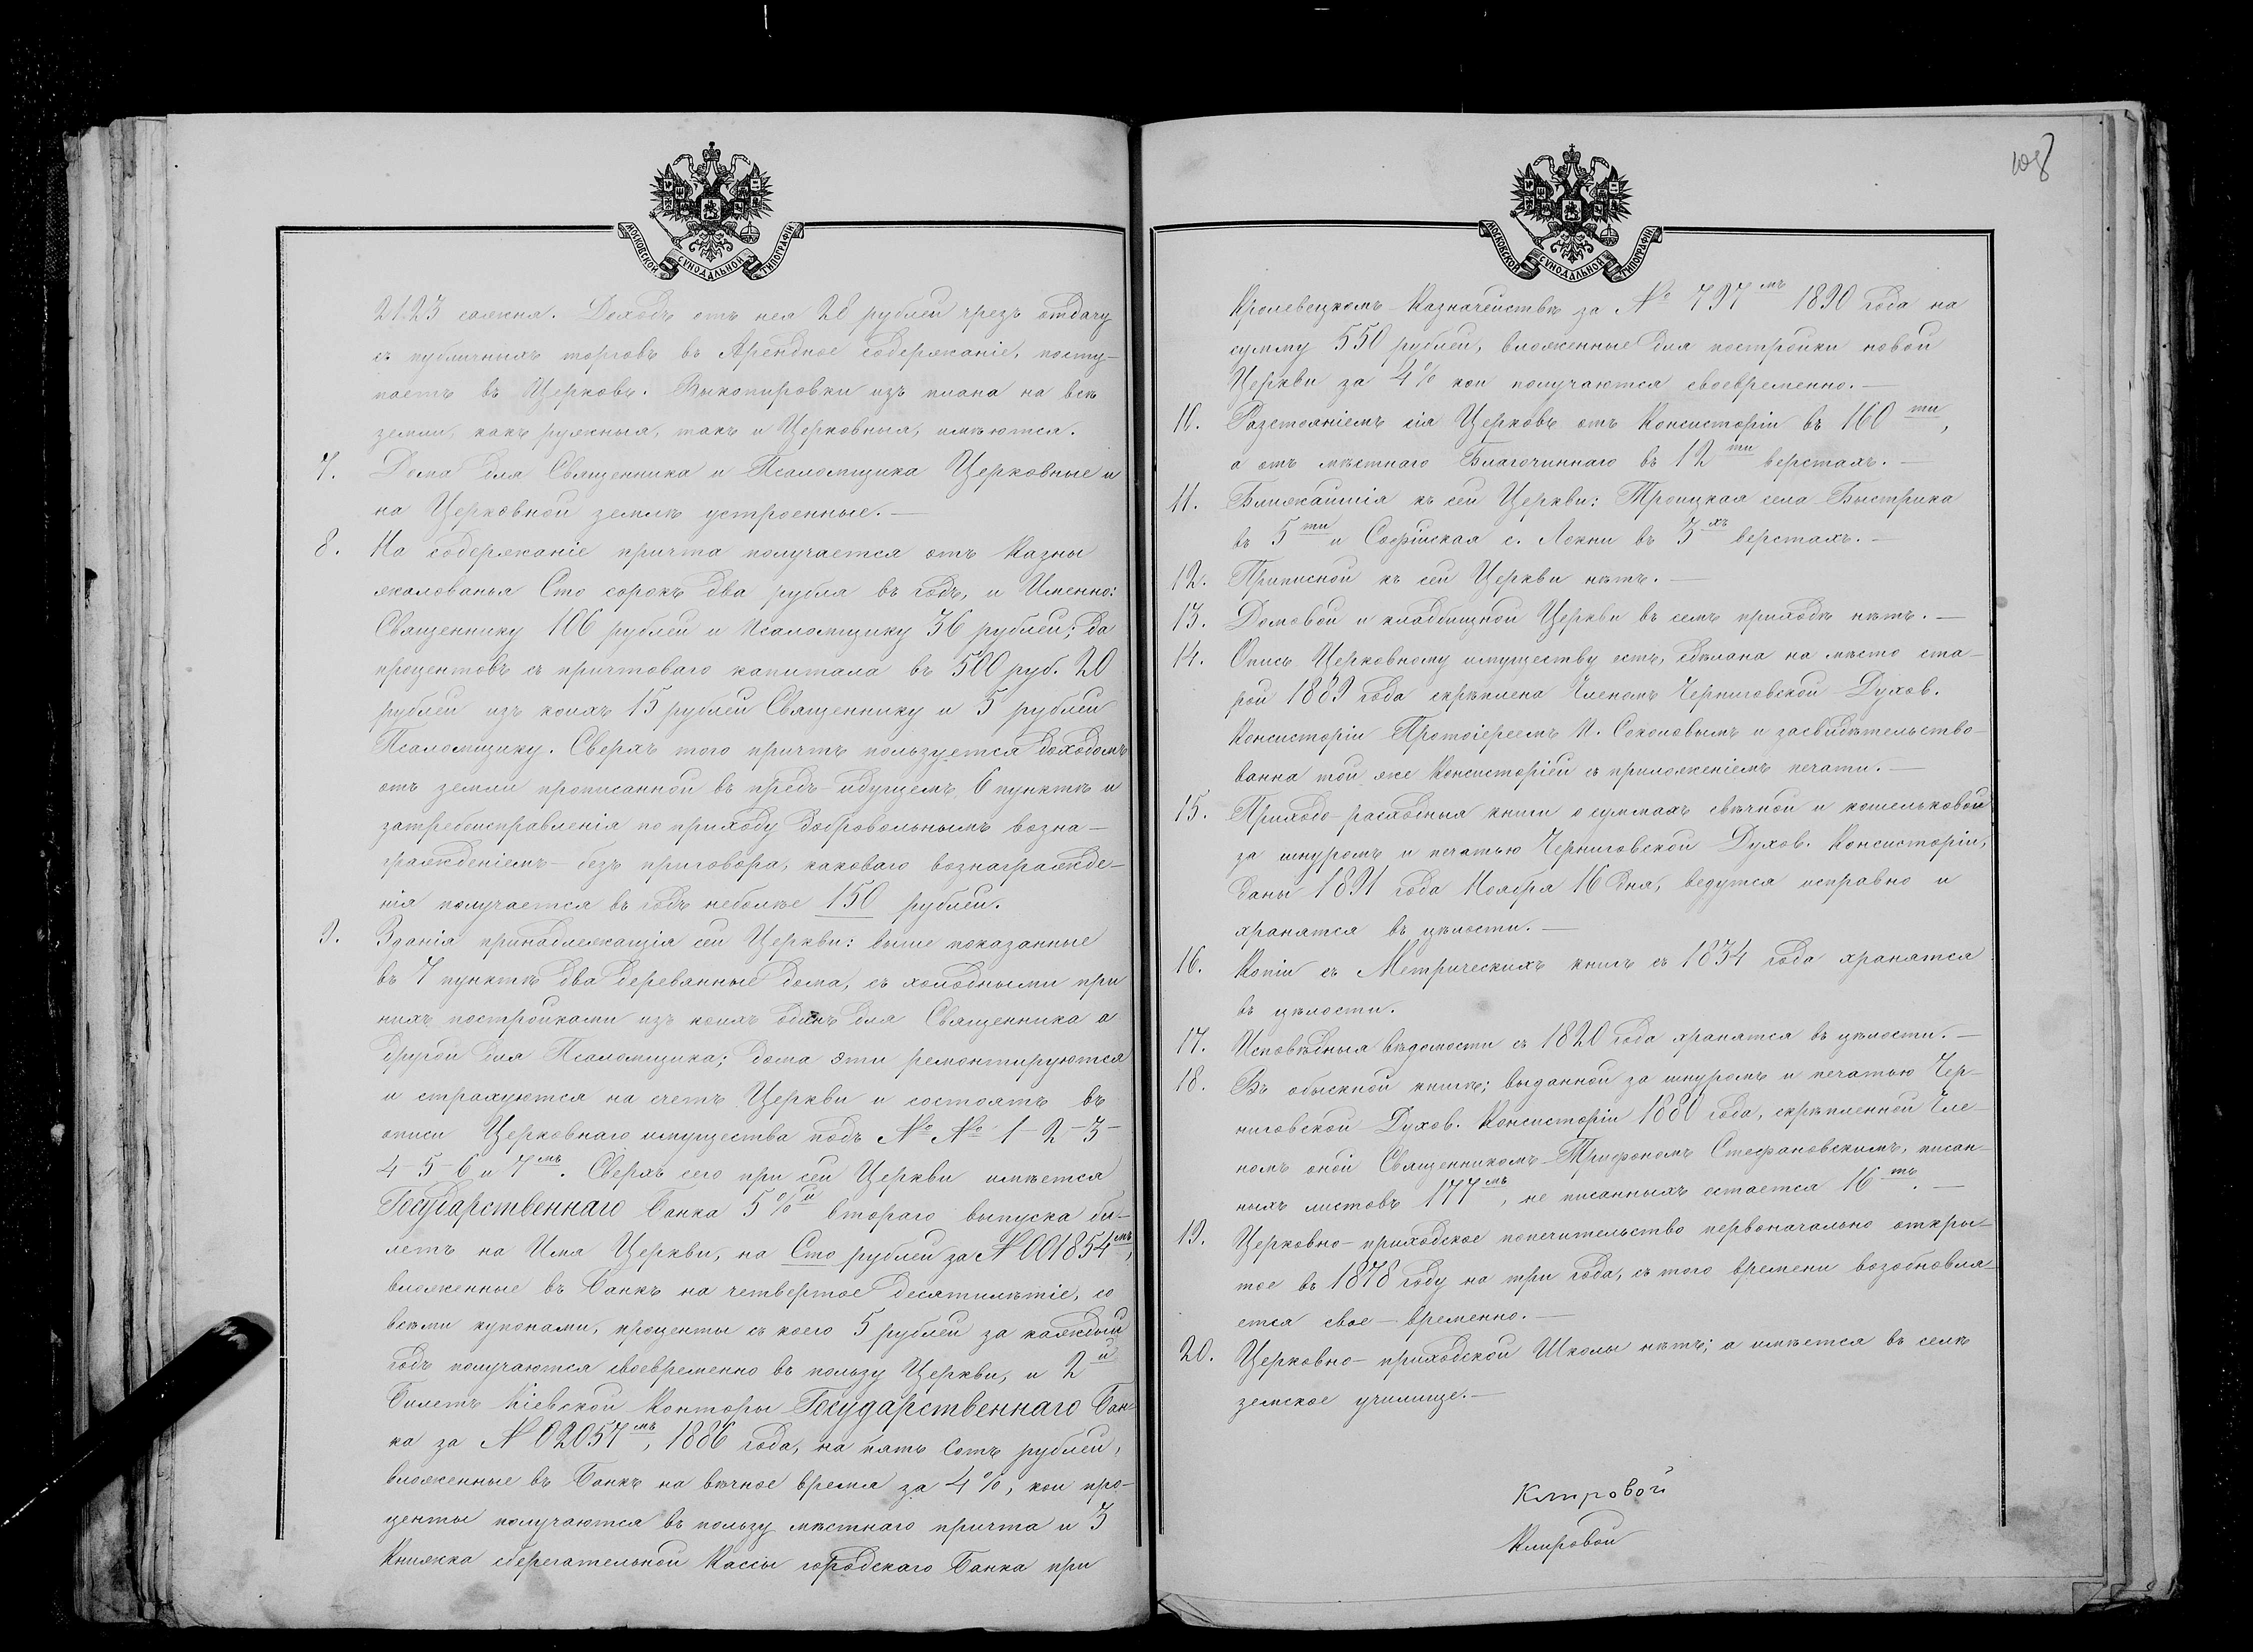 МОСКОВСКОЙ СѴНОДАЛЬНОЙ ТИПОГРАФІИ
2123 сажня. Доходъ отъ нея 28 рублей чрезъ отдачу
съ публичныхъ торговъ въ Арендное содержаніе, посту-
паетъ въ Церковь. Выкопировки изъ плана на всѣ
земли, какъ ружныя, такъ и Церковныя, имѣются.
7. Дома для Священника и Псаломщика Церковные и
на Церковной землѣ устроенные. —
8. На содержаніе причта получается отъ Казны
жалованья Сто сорокъ два рубля въ годъ, и Именно:
Священнику 106 рублей и Псаломщику 36 рублей; да
процентовъ съ причтоваго капитала въ 500 руб. 20
рублей изъ коихъ 15 рублей Священнику и 5 рублей
Псаломщику. Сверхъ того причтъ пользуется доходомъ
отъ земли прописанной въ предъ-идущемъ 6 пунктѣ и
затребоисправленія по приходу добровольнымъ возна-
гражденіемъ — безъ приговора, каковаго вознагражде-
нія получается въ годъ неболѣе 150 рублей.
9. Зданія принадлежащія сей Церкви: выше показанные
въ 7 пунктѣ два деревянные дома, съ холодными при
нихъ постройками изъ коихъ одинъ для Священника а
другой для Псаломщика; дома эти ремонтируются
и страхуются на счетъ Церкви и состоятъ въ
описи Церковнаго имущества подъ №№ 1-2-3-
4-5-6 и 7мъ. Сверхъ сего при сей Церкви имѣется
Государственнаго банка 5%й втораго выпуска би-
летъ на Имя Церкви, на Сто рублей за № 001854мъ,
вложенные въ банкъ на четвертое десятилѣтіе, со
всѣми купонами, проценты съ коего 5 рублей за каждый
годъ получаются своевременно въ пользу Церкви, и 2й
билетъ Кіевской Конторы Государственнаго Бан-
ка за № 02057мъ, 1886 года, на пять сотъ рублей,
вложенные въ банкъ на вѣчное время за 4%, кои про-
центы получаются въ пользу мѣстнаго причта и 3
Книжка сберегательной Кассы городскаго банка при
108
МОСКОВСКОЙ СѴНОДАЛЬНОЙ ТИПОГРАФІИ
Кролевецкомъ Казначействѣ за № 797мъ 1890 года на
сумму 550 рублей, вложенные для постройки новой
Церкви за 4% кои получаются своевременно. —
10. Разстояніемъ сія Церковь отъ Консисторіи въ 160ти,
а отъ мѣстнаго Благочиннаго въ 12ти верстахъ. —
11. Ближайшія къ сей Церкви: Троицкая села Быстрика
въ 5ти и Софійская с. Локни въ 3хъ верстахъ. —
12. Приписной къ сей Церкви нѣтъ. —
13. Домовой и кладбищной Церкви въ семъ приходѣ нѣтъ. —
14. Опись Церковному имуществу есть, сдѣлана на мѣсто ста-
рой 1889 года скрѣплена Членомъ Черниговской Духов.
Консисторіи Протоіереемъ И. Соколовымъ и засвидѣтельство-
ванна той же Консисторіей съ приложеніемъ печати. —
15. Приходо-расходныя книги о суммахъ свѣчной и кошельковой
за шнуромъ и печатью Черниговской Духов. Консисторіи,
даны 1891 года Ноября 16 дня, ведутся исправно и
хранятся въ цѣлости. —
16. Копіи съ Метрическихъ книгъ съ 1834 года хранятся
въ цѣлости.
17. Исповѣдныя вѣдомости съ 1820 года хранятся въ цѣлости. —
18. Въ обыскной книгѣ; выданной за шнуромъ и печатью Чер-
ниговской Духов. Консисторіи 1880 года, скрѣпленной Чле-
номъ оной Священникомъ Трифономъ Стефановскимъ, писан-
ныхъ листовъ 177мъ, не писанныхъ остается 16ть. —
19. Церковно-приходское попечительство первоначально откры-
тое въ 1878 году на три года, съ того времени возобновля-
ется свое-временно. —
20. Церковно-приходской Школы нѣтъ; а имѣется въ селѣ
земское училище. —
Клировой
Клировой